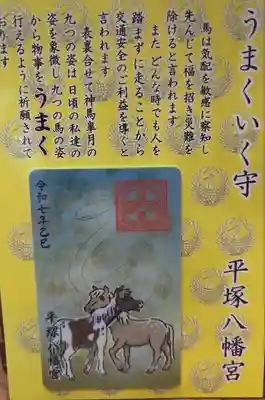 うまくいく守
平塚八幡宮
馬は気配を敏感に察知し
先んじて福を招き災難を
除けると言われます
また どんな時でも人を
踏まずに走ることから
交通安全のご利益を導くと
言われます
表裏合せて神馬皐月の
九つの姿は 日頃の私達の
姿を象徴し 九つの馬の姿
から物事をうまく
行えるように祈願されて
おります
令和七年乙巳
平塚八幡宮